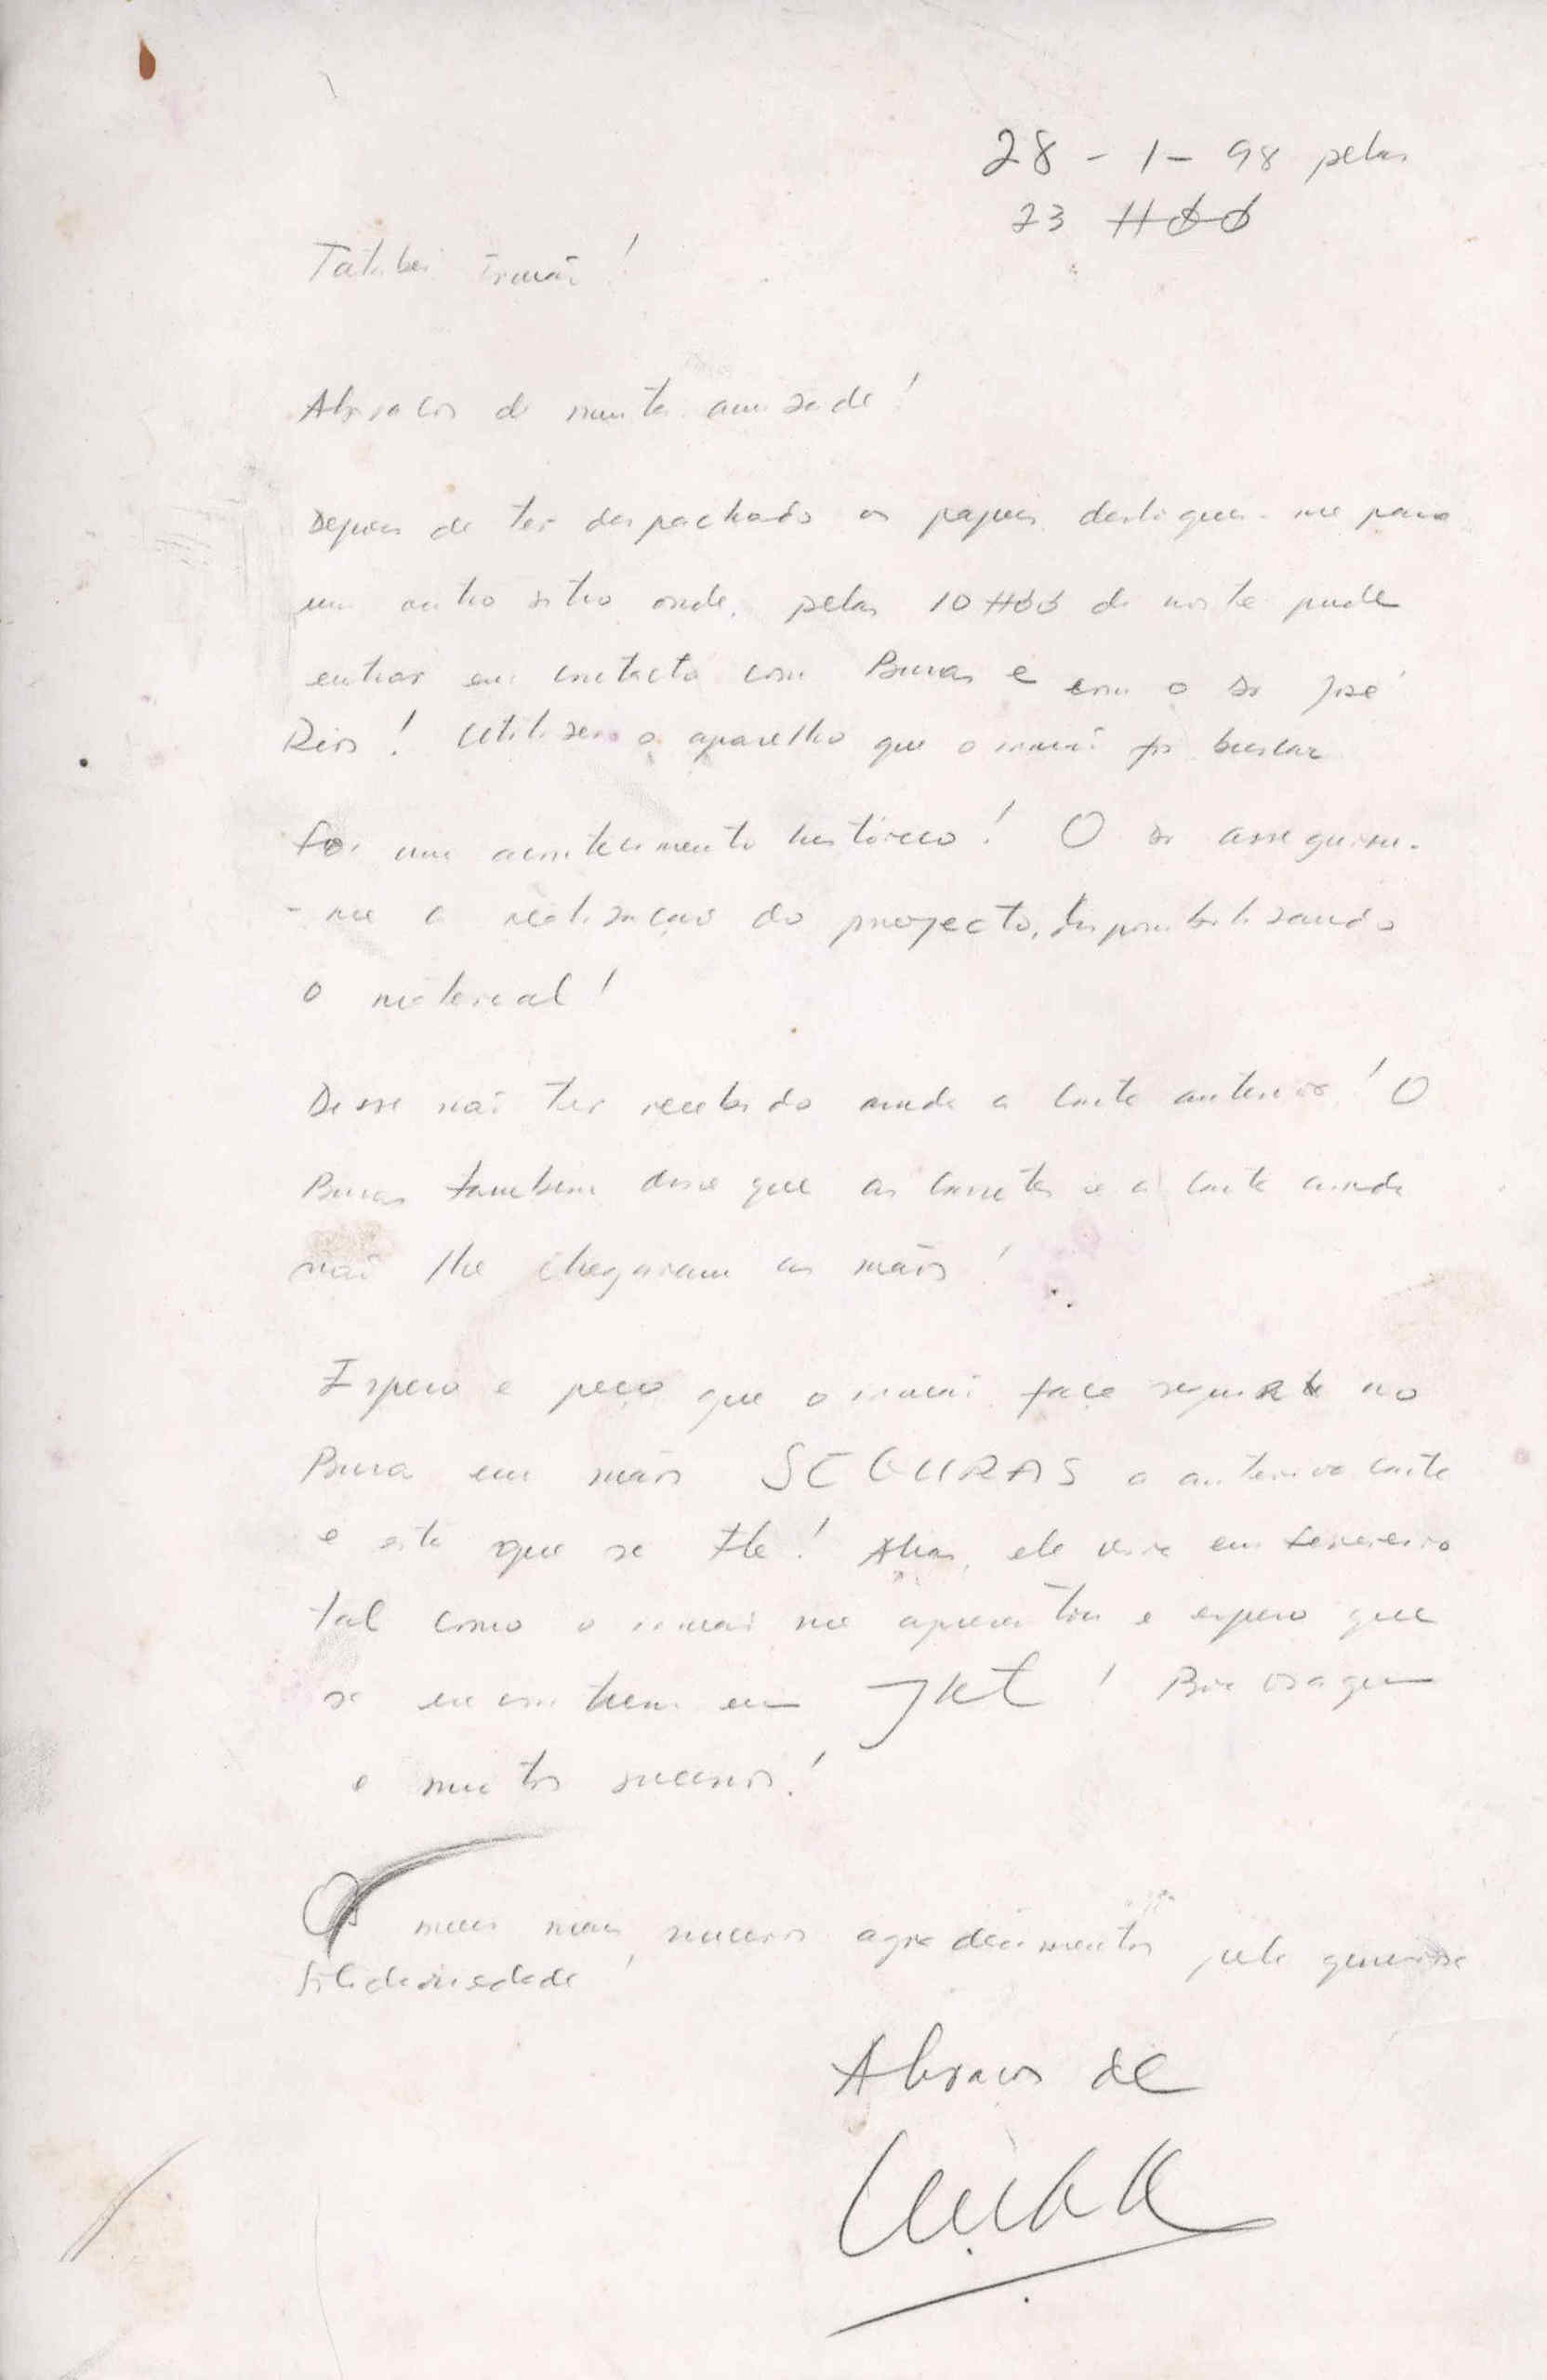 28 - 1 - 98 pelas
23 H00
irmão!
Abraços de muita amizade!
Depois de ter despachado os papeis desloquei-me para
um outro sitio onde, pelas 10H00 da noite pude
entrar em contacto com Buras e com o Sr José
Reis! Utilizei o aparelho que o irmão foi buscar
Foi um acontecimento histórico! O Sr assegurou-
-me a realização do projecto, disponibilizando
o material!
Disse não ter recebido ainda a carta anterior! O
Buras também disse que as cassetes e a carta ainda
não lhe chegaram as mãos!
Espero e peço que o irmão faça seguir ao
Buras em mãos SEGURAS a anterior carta
e esta que se! Alias, ele vira em Fevereiro
tal como o irmão me e espero que
se encontrem em JKT! Boa viagem
e muitos sucessos!
Os meus mais sinceros agradecimentos pela generosa
solidariedade!
Abraços de